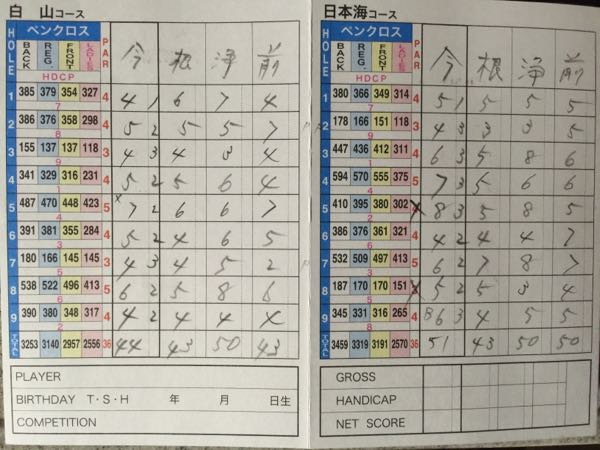 白 山コース
HOLE ベンクロス PAR 今 根 浄 前
BACK REG. FRONT LADIES
HDCP
1 385 379 354 327 4 4 1 6 7 4
7
2 386 376 358 298 4 5 2 5 5 7
8
3 155 137 137 118 3 4 3 4 3 4
9
4 341 329 316 231 4 5 2 5 6 4
5 487 470 448 423 5 x7 2 6 6 7
4
6 391 381 355 284 4 5 2 4 6 5
3
7 180 166 145 145 3 4 3 4 5 2
8 538 522 496 413 5 6 2 5 8 6
9 390 380 348 317 4 4 2 4 4 4
2
TOTAL 3253 3140 2957 2556 36 44 43 50 43
PLAYER
BIRTHDAY T・S・H 年 月 日生
COMPETITION
日本海コース
HOLE ベンクロス PAR 今 根 浄 前
BACK REG. FRONT LADIES
HDCP
1 380 366 349 314 4 5 1 5 5 5
7
2 178 166 151 118 3 4 3 3 3 5
8
3 447 436 412 311 4 6 3 5 8 6
4 594 570 555 375 5 7 3 5 6 6
5 410 395 380 302 x 8 3 5 8 5
6 386 376 361 321 4 4 2 4 4 7
7 532 509 497 413 5 6 2 7 8 7
8 187 170 170 151 x 5 2 5 3 4
9 345 331 316 265 4 B6 3 4 5 5
TOTAL 3459 3319 3191 2570 36 51 43 50 50
GROSS
HANDICAP
NET SCORE